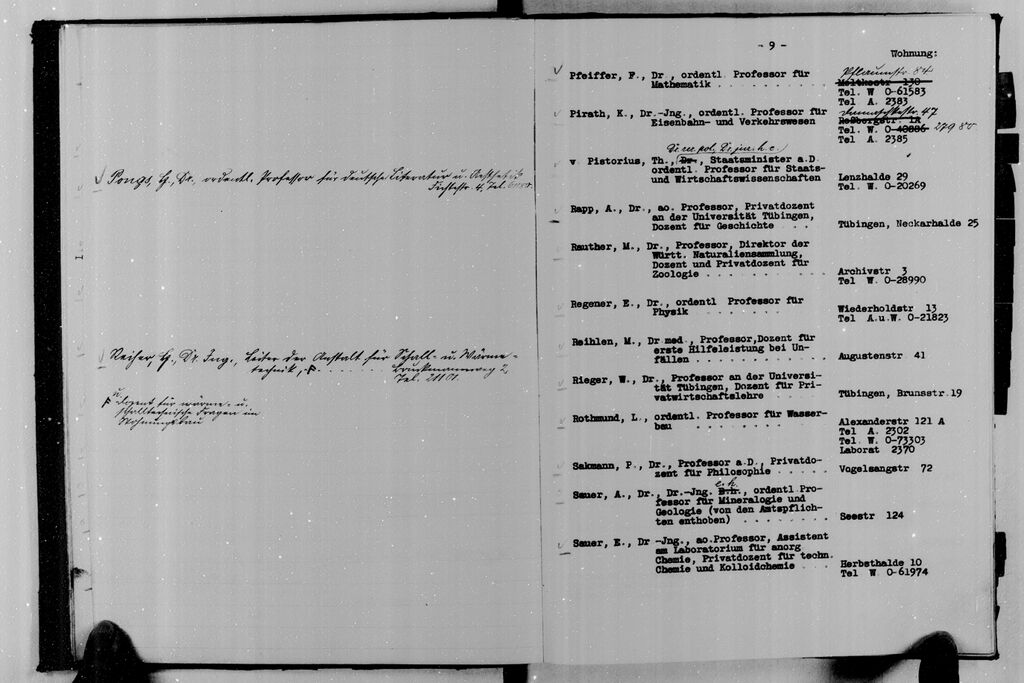 Pongs, H., Dr. ordentl. Professor für deutsche Literatur u. Ästhetik
Fichtestr. 4, Tel.
Reiher, H., Dr. Ing., Leiter der Anstalt für Schall- u. Wärme-
technik, . . . . . . . Brückmannweg 2,
Tel. 21101.
u.
Dozent für wärme- u.
schalltechnische Fragen im
Wohnungsbau
- 9 -
Wohnung:
Pfeiffer, F., Dr., ordentl. Professor für
Mathematik . . . . . . . . . .
Pflaumstr. 84
Moltkestr 130
Tel. W 0-61583
Tel A. 2383
Pirath, K., Dr.-Jng., ordentl. Professor für
Eisenbahn- und Verkehrswesen
47
Reßbergstr. 1A
Tel. W. 0-40886 279 80
Tel A. 2385
Dr. rer. pol. Dr. jur. h. c.
v Pistorius, Th., Dr., Staatsminister a.D.
ordentl. Professor für Staats-
und Wirtschaftswissenschaften
Lenzhalde 29
Tel. W. 0-20269
Rapp, A., Dr., ao. Professor, Privatdozent
an der Universität Tübingen,
Dozent für Geschichte . . .
Tübingen, Neckarhalde 25
Rauther, M., Dr., Professor, Direktor der
Württ. Naturaliensammlung,
Dozent und Privatdozent für
Zoologie . . . . . . . . . . .
Archivstr 3
Tel W. 0-28990
Regener, E., Dr., ordentl Professor für
Physik . . . . . . . . . . . .
Wiederholdstr 13
Tel A.u.W. 0-21823
Reihlen, M., Dr med., Professor,Dozent für
erste Hilfeleistung bei Un-
fällen . . . . . . . . . . . .
Augustenstr 41
Rieger, W., Dr., Professor an der Universi-
tät Tübingen, Dozent für Pri-
vatwirtschaftslehre . . . . .
Tübingen, Brunsstr.19
Rothmund, L., ordentl. Professor für Wasser-
bau . . . . . . . . . . . . .
Alexanderstr 121 A
Tel A. 2302
Tel. W. 0-73303
Laborat 2370
Sakmann, P., Dr., Professor a.D., Privatdo-
zent für Philosophie . . . . .
Vogelsangstr 72
e. h.
Sauer, A., Dr., Dr.-Jng. E.h., ordentl Pro-
fessor für Mineralogie und
Geologie (von den Amtspflich-
ten enthoben) . . . . . . . .
Seestr 124
Sauer, E., Dr -Jng., ao.Professor, Assistent
am Laboratorium für anorg
Chemie, Privatdozent für techn.
Chemie und Kolloidchemie . . .
Herbsthalde 10
Tel W 0-61974